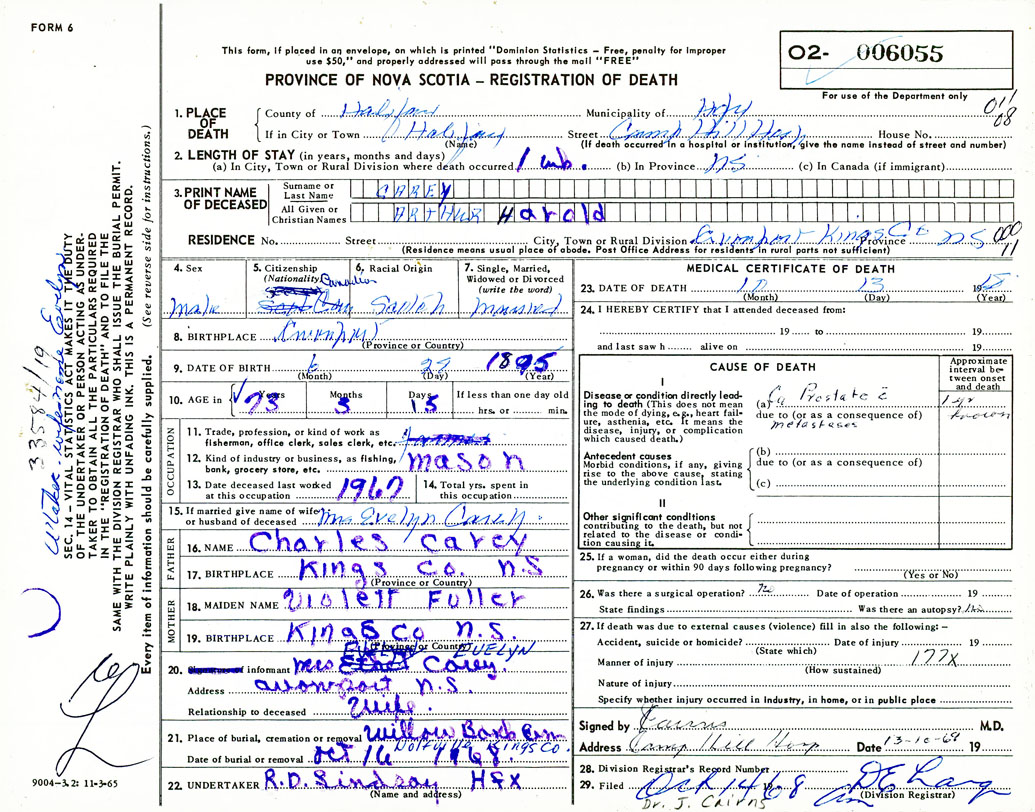 FORM 6
This form, if placed in an envelope, on which is printed "Dominion Statistics — Free, penalty for improper
use $50," and properly addressed will pass through the mail "FREE"
O2- 006055
For use of the Department only
PROVINCE OF NOVA SCOTIA — REGISTRATION OF DEATH
011
08
1. PLACE OF DEATH
County of Halifax Municipality of Hfx
If in City or Town Halifax Street Camp Hill Hosp House No.
(Name) (If death occurred in a hospital or institution, give the name instead of street and number)
2. LENGTH OF STAY (in years, months and days)
(a) In City, Town or Rural Division where death occurred 1 (b) In Province NS (c) In Canada (if immigrant)
3. PRINT NAME OF DECEASED
Surname or Last Name CAREY
All Given or Christian Names ARTHUR Harold
RESIDENCE No. Street City, Town or Rural Division Avonport Kings Co Province NS
000
11
(Residence means usual place of abode. Post Office Address for residents in rural parts not sufficient)
4. Sex
Male
5. Citizenship
(Nationality)
Canadian
6. Racial Origin
7. Single, Married,
Widowed or Divorced
(write the word)
Married
8. BIRTHPLACE Avonport
(Province or Country)
9. DATE OF BIRTH 6 28 1895
(Month) (Day) (Year)
10. AGE in Years 73 Months 3 Days 15 If less than one day old
hrs. or min.
OCCUPATION
11. Trade, profession, or kind of work as
fisherman, office clerk, sales clerk, etc.
12. Kind of industry or business, as fishing,
bank, grocery store, etc. mason
13. Date deceased last worked
at this occupation 1967
14. Total yrs. spent in
this occupation
15. If married give name of wife
or husband of deceased Mrs Evelyn Carey
FATHER
16. NAME Charles Carey
17. BIRTHPLACE Kings Co. N S
(Province or Country)
MOTHER
18. MAIDEN NAME Violett Fuller
19. BIRTHPLACE Kings Co N.S.
(Province or Country)
EVELYN
20. informant Mrs Carey
Address Avonport N.S.
Relationship to deceased Wife.
21. Place of burial, cremation or removal Willow Bank Cem
Wolfville Kings Co.
Date of burial or removal Oct 16 1968.
22. UNDERTAKER R.D. Lindsay HFX
(Name and address)
MEDICAL CERTIFICATE OF DEATH
23. DATE OF DEATH 10 13 19
(Month) (Day) (Year)
24. I HEREBY CERTIFY that I attended deceased from:
19 to
19
and last saw h alive on 19
CAUSE OF DEATH
Approximate interval between onset and death
I
Disease or condition directly leading to death (This does not mean the mode of dying, e.g., heart failure, asthenia, etc. It means the disease, injury, or complication which caused death.)
(a) Ca Prostate c̄
due to (or as a consequence of)
metastases
1 yr
known
Antecedent causes
Morbid conditions, if any, giving rise to the above cause, stating the underlying condition last.
(b)
due to (or as a consequence of)
(c)
II
Other significant conditions
contributing to the death, but not related to the disease or condition causing it.
25. If a woman, did the death occur either during
pregnancy or within 90 days following pregnancy?
(Yes or No)
26. Was there a surgical operation? No Date of operation 19
State findings Was there an autopsy? No
27. If death was due to external causes (violence) fill in also the following:—
Accident, suicide or homicide? Date of injury 19
(State which)
Manner of injury 177X
(How sustained)
Nature of injury
Specify whether injury occurred in industry, in home, or in public place
Signed by Cairns M.D.
Address Camp Hill Hosp Date 13-10-68 19
28. Division Registrar's Record Number
29. Filed Oct 14 68
(Division Registrar)
Dr. J. Cairns
9004-3.2: 11-3-65
33584/19
SEC. 14 — VITAL STATISTICS ACT MAKES IT THE DUTY
OF THE UNDERTAKER OR PERSON ACTING AS UNDER-
TAKER TO OBTAIN ALL THE PARTICULARS REQUIRED
IN THE "REGISTRATION OF DEATH" AND TO FILE THE
SAME WITH THE DIVISION REGISTRAR WHO SHALL ISSUE THE BURIAL PERMIT.
WRITE PLAINLY WITH UNFADING INK. THIS IS A PERMANENT RECORD.
Every item of information should be carefully supplied. (See reverse side for instructions.)